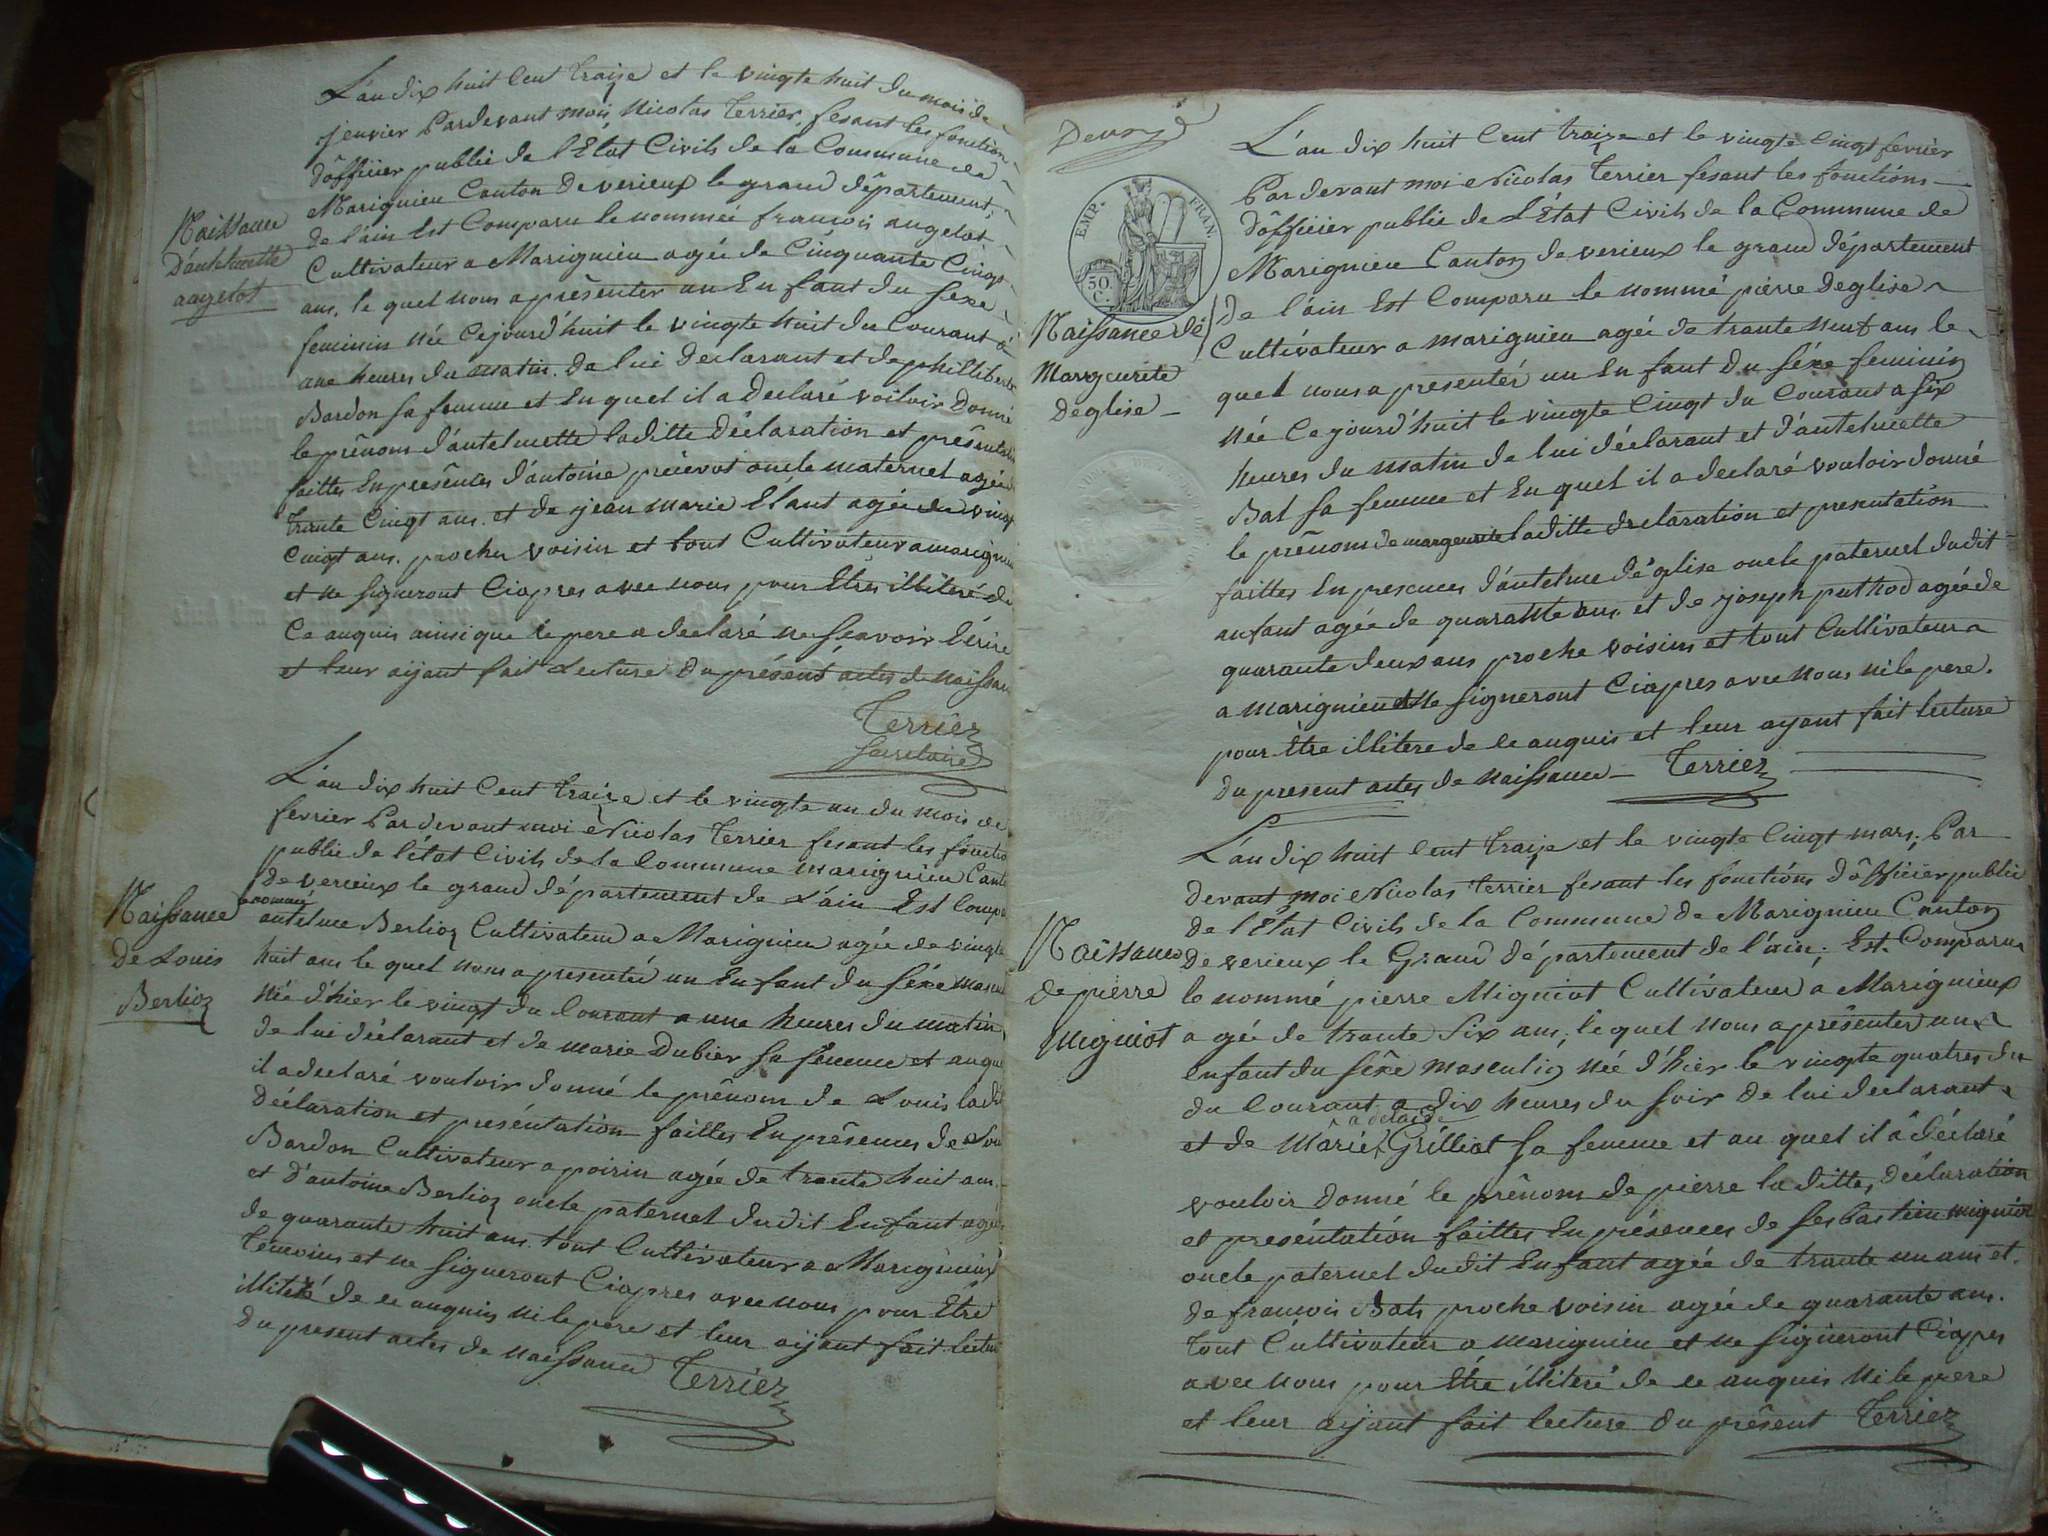 L'an dix huit Cent traize et le vingte huit du mois de
jenvier Pardevant moi Nicolas Terrier, fesant les fonction
d'officier public de l'Etat Civils de la Commune de
Marignieu Canton de verieux le grand département
de l'ain Est Comparu le nommée francois angelot
Cultivateur a Marignieu agée de Cinquante Cinqt
ans, le quel nous a présenter un Enfant du sexe
feminin Née Cejourd'huit le vingte huit du Courant à
une heures du matin. de lui declarant et de philliberte
Bardon sa femme et Enquel il a declaré voiloir Donné
le prénom d'antelmette laditte déclaration et présentation
faittes En présences d'antoine onele maternel agée
trante Cinqt ans. et de jean marie agée de vingt
Cinqt ans. proche voisin et tout Cultivateur a marignieu
et ne signeront Ciapres avec nous pour Etres illiteré de
Ce anquis ainsi que le pere a declaré ne sçavoir Ecrire
et leur aijant fait Lecture du présent actes de naissan
Terrier
Secretaire
Naissance
D'antelmette
angelot
L'an dix huit Cent traize et le vingte un du mois de
fevrier Par devant moi Nicolas Terrier fesant les fonctio
public de l'état Civils de la Commune marignieu Cant
de verieux le grand département de L'ain Est Compa
le nommé
antelme Berlioz Cultivateur a Marignieu agée de vingte
huit ans le quel nous a presentée un Enfant du séxe mascu
Née d'hier le vingt du Courant a une heures du matin
de lui déclarant et de marie Dubier sa fémme et auque
il a declaré vouloir donné le prénom de Louis ladit
déclaration et preséntation faittes En présences de Lou
Bardon Cultivateur a poirin agée de trante huit ans
et d'antoine Berlioz onele paternel dudit Enfant agée
de quarante huit ans. tout Cultivateur a Marignieux
temoins et ne signeront Ciapres avec nous pour Etre
illiteré de ce anquis ni le pere et leur aijant fait lectur
du present actes de naissance Terrier
Naissance
de Louis
Berlioz
L'an dix huit Cent traize et le vingte Cinqt fevrier
Par devant moi Nicolas Terrier fesant les fonctions
d'officier public de L'Etat Civils de la Commune de
Marignieu Canton de verieux le grand département
De l'ain Est Comparu le nommé pierre Deglise
Cultivateur a marignieu agée de trante Neuf ans le
quel nous a presentér un Enfant du séxe feminin
Née Cejourd'huit le vingte Cinqt du Courant a six
heures du matin de lui déclarant et d'antelmette
Bal sa femme et En quel il a declaré vouloir donné
le prénom de margeurite laditte declaration et presentation
faittes En presences d'antelme d'église onele paternel dudit
anfant agée de quarante ans et de joseph puthod agée de
quarante deux ans proche voisins et tout Cultivateur a
a marignieu et ne signeront Ciapres avec nous ni le pere.
pour Etre illitere de ce anquis et leur ayant fait lecture
du present actes de naissance Terrier
EMP. FRAN.
50.
C.
Naissance dé
Margeurite
Deglise
L'an dix huit Cent traize et le vingte Cinqt mars, Par
devant moi Nicolas Terrier fesant les fonctions d'officier public
de l'Etat Civils de la Commune de Marignieu Canton
de verieux le Grand département de l'ain, Est. Comparu
le nommé pierre Migniot Cultivateur a Marignieux
agée de trante six ans, le quel nous a présenter un
enfant du séxe masculin Née d'hier le vingte quatres du
du Courant a dix heures du soir de lui declarant
adelaide
et de Marie Grilliat sa femme et au quel il a déclaré
vouloir donné le prénom de pierre laditte, déclaration
et preséntation faittes En présences de sesbastien migniot
onele paternel dudit Enfant agée de trante un ans et
de francois Bats proche voisin agée de quarante ans.
tout Cultivateur a marignieu et ne signeront Ciapres
avec nous pour Etre illiteré de ce anquis ni le pere
et leur aijant fait lecture du présent Terrier
Naissance
de pierre
Migniot